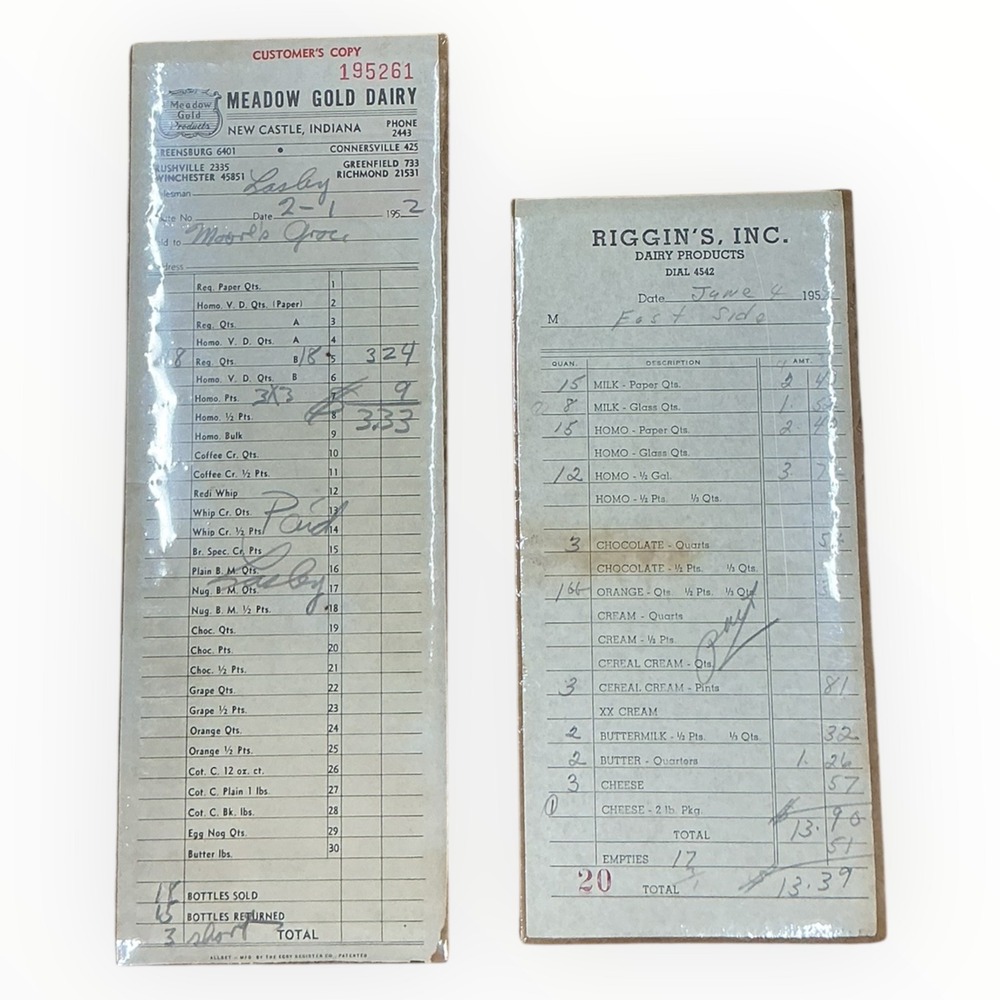 CUSTOMER'S COPY
195261
Meadow Gold Products
MEADOW GOLD DAIRY
NEW CASTLE, INDIANA PHONE 2443
REENSBURG 6401 • CONNERSVILLE 425
RUSHVILLE 2335 GREENFIELD 733
WINCHESTER 45851 RICHMOND 21531
lesman Lasley
ute No. Date 2-1 1952
ld to Moore's Groc
dress
Req. Paper Qts. 1
Homo. V. D. Qts. (Paper) 2
Reg. Qts. A 3
Homo. V. D. Qts. A 4
18 Reg. Qts. B 18 5 324
Homo. V. D. Qts. B 6
Homo. Pts. 3X3 7 9
Homo. ½ Pts. 8 333
Homo. Bulk 9
Coffee Cr. Qts. 10
Coffee Cr. ½ Pts. 11
Redi Whip 12
Whip Cr. Qts. 13
Whip Cr. ½ Pts. 14
Paid
Br. Spec. Cr. Pts 15
Plain B. M. Qts. 16
Nug. B. M. Qts. 17
Lasley
Nug. B. M. ½ Pts. 18
Choc. Qts. 19
Choc. Pts. 20
Choc. ½ Pts. 21
Grape Qts. 22
Grape ½ Pts. 23
Orange Qts. 24
Orange ½ Pts. 25
Cot. C. 12 oz. ct. 26
Cot. C. Plain 1 lbs. 27
Cot. C. Bk. lbs. 28
Egg Nog Qts. 29
Butter lbs. 30
18 BOTTLES SOLD
15 BOTTLES RETURNED
3 short TOTAL
MFG BY THE EGRY REGISTER CO., PATENTED
RIGGIN'S, INC.
DAIRY PRODUCTS
DIAL 4542
Date June 4 195
M East Side
QUAN. DESCRIPTION AMT.
15 MILK - Paper Qts. 2
8 MILK - Glass Qts. 1
15 HOMO - Paper Qts. 2
HOMO - Glass Qts.
12 HOMO - ½ Gal. 3
HOMO - ½ Pts. ⅓ Qts.
3 CHOCOLATE - Quarts
CHOCOLATE - ½ Pts. ⅓ Qts.
ORANGE - Qts. ½ Pts. ⅓ Qts.
CREAM - Quarts
CREAM - ½ Pts.
CEREAL CREAM - Qts.
3 CEREAL CREAM - Pints 81
XX CREAM
2 BUTTERMILK - ½ Pts. ⅓ Qts. 32
2 BUTTER - Quarters 1. 26
3 CHEESE 57
1 CHEESE - 2 lb. Pkg.
TOTAL $ 13.90
EMPTIES 17 51
20 TOTAL $ 13.39